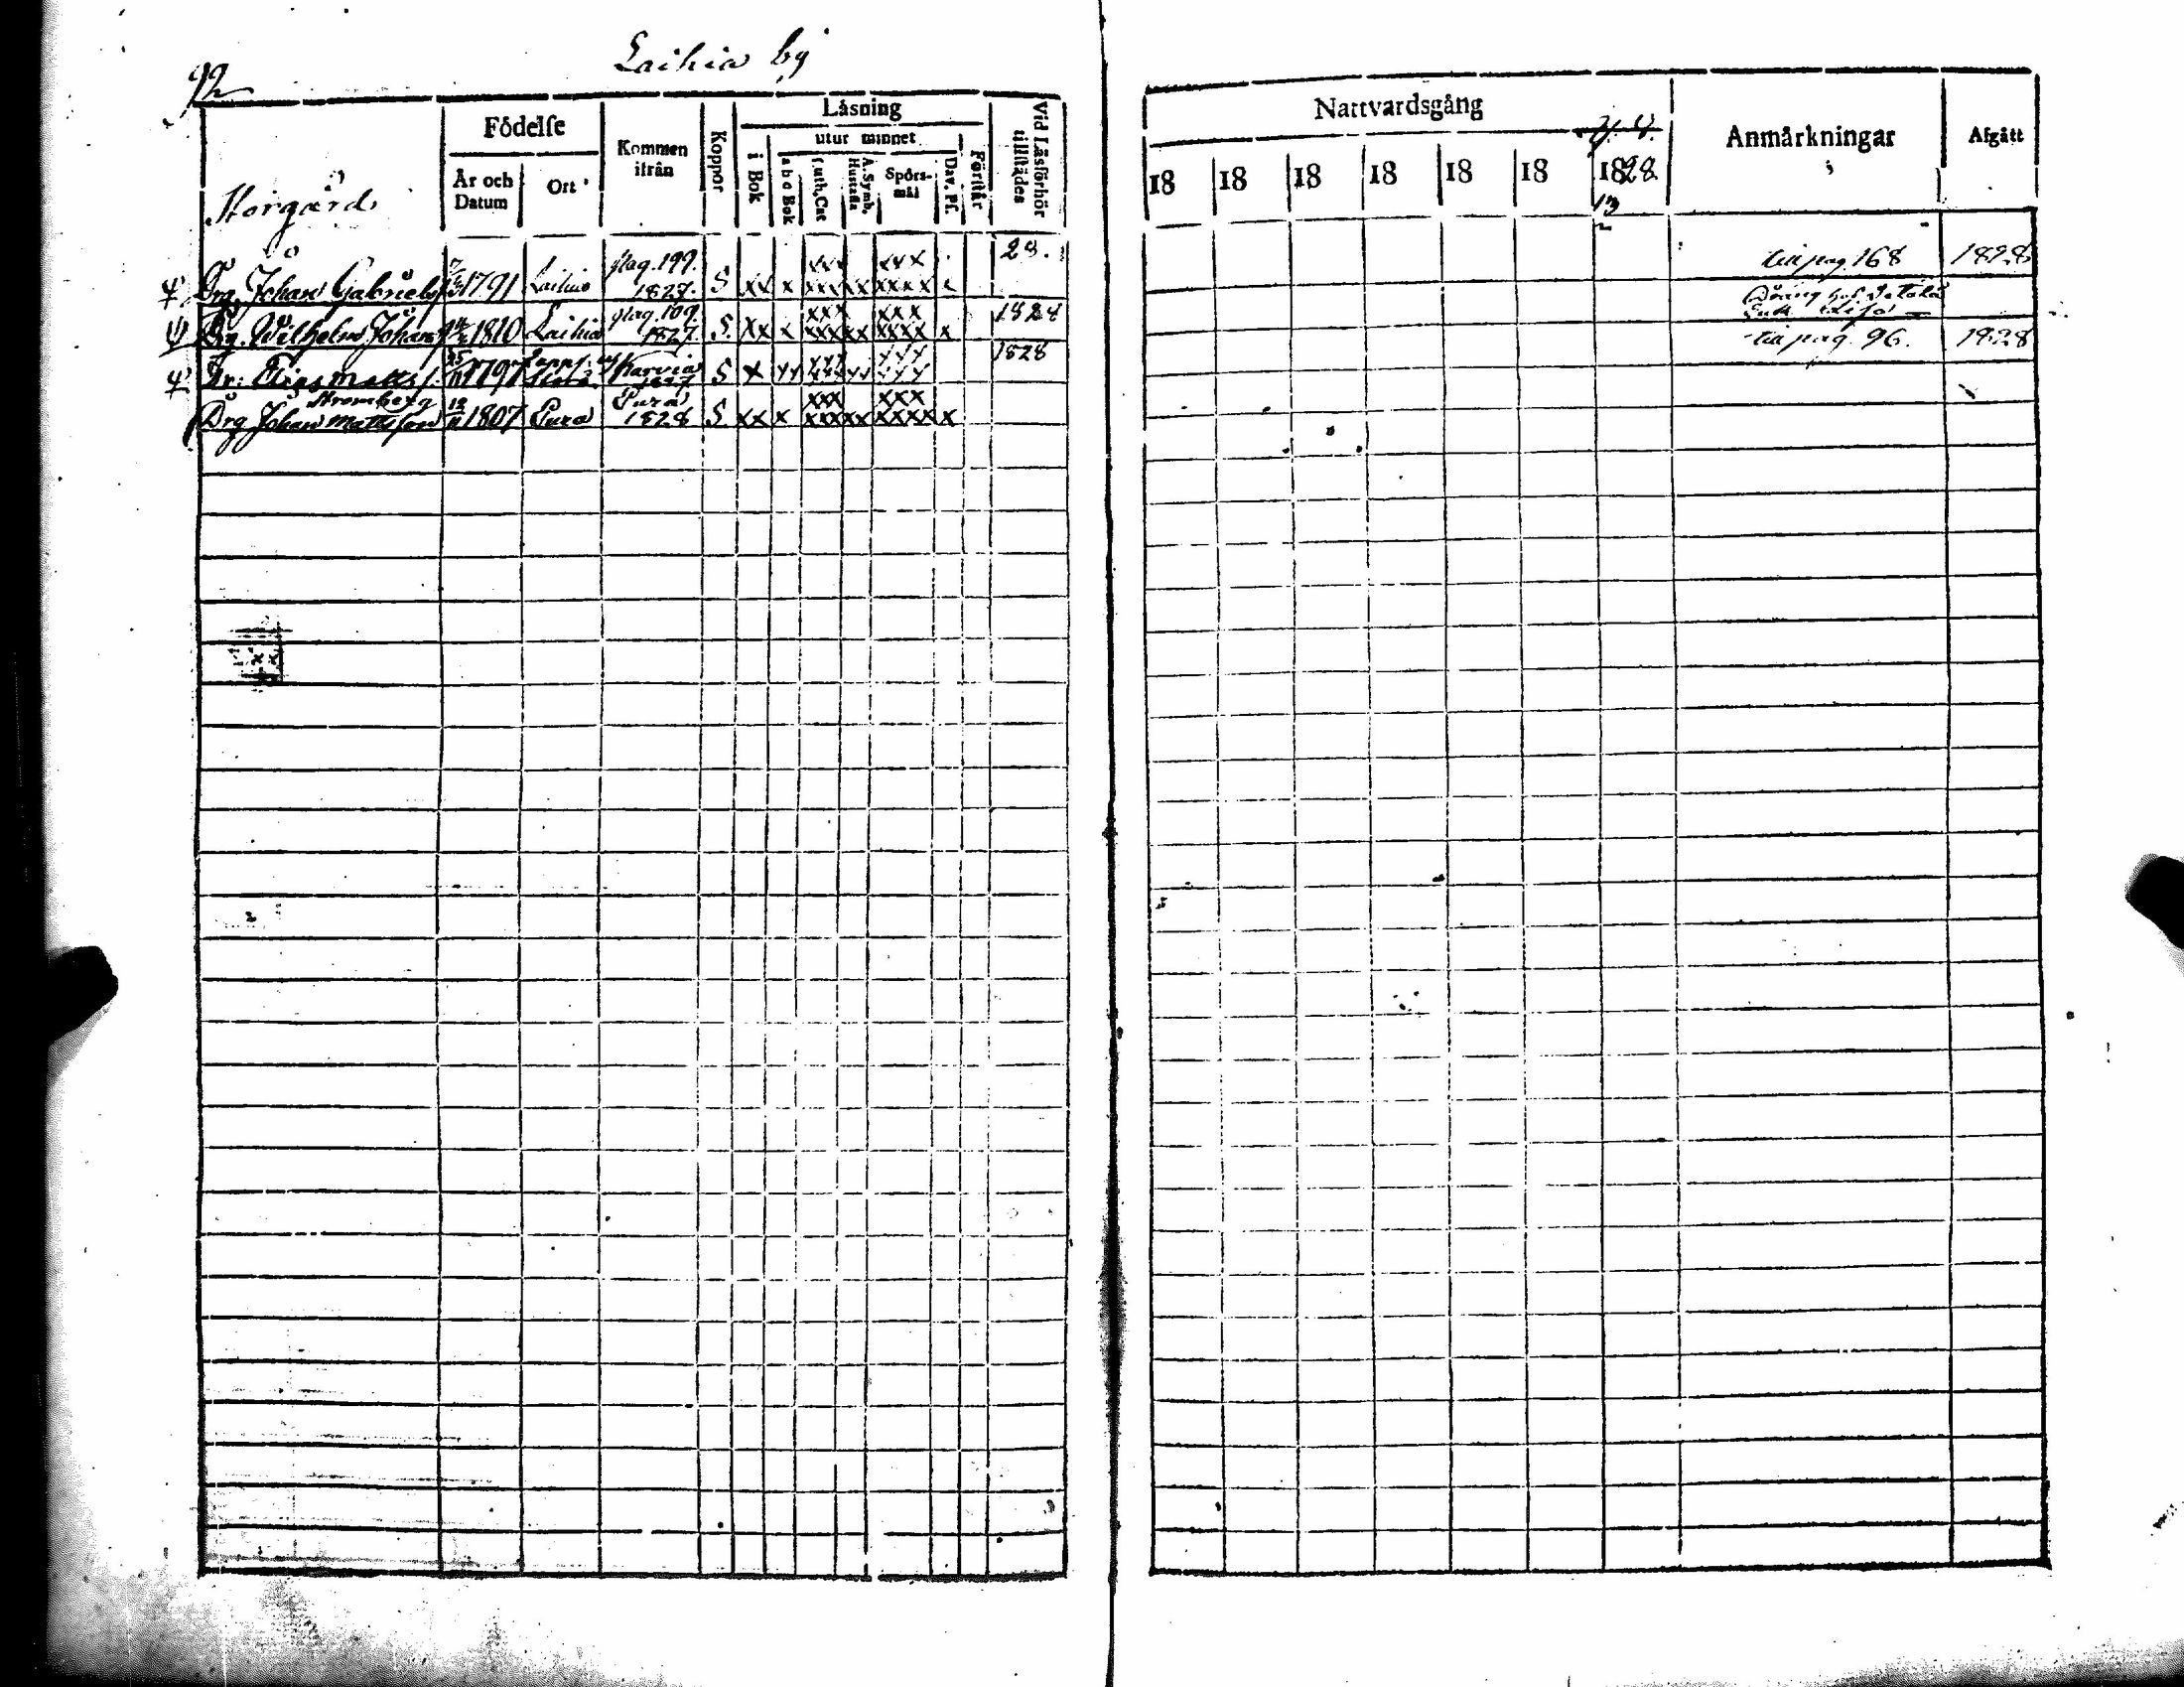 92
Laihia by
Storgård
Födelse
År och Datum
Ort
Kommen ifrån
Koppor
Läsning
i Bok
utur minnet
a b c Bok
Luth. Cat
A. Symb. Hustafla
Spörsmål
Dav. Ps.
Förstår
Vid Läsförhör tillstädes
Nattvardsgång
18 18 18 18 18 18 1828
Anmärkningar
Afgått
Drg. Johan Gabrielsf 1791 Laihia pag. 199. 1827. S xx x xxx xxxx xx xxx xxxx x 28. till pag. 168 1828
Drg. Wilhelm Johans 1810 Laihia pag. 109. 1827 S. xx x xxx xxxx xx xxx xxxx x 1828 Dräng hos
Dr: Elias Matts f. 25/11 1797 Karvia 1827 S x xx xxx xxx xx xxx xxx 1828 till pag. 96. 1828
Stromberg
Drg Johan Mattsson 12/11 1807 Pura Pura 1828 S. xx x xxx xxxx xx xxx xxxx x